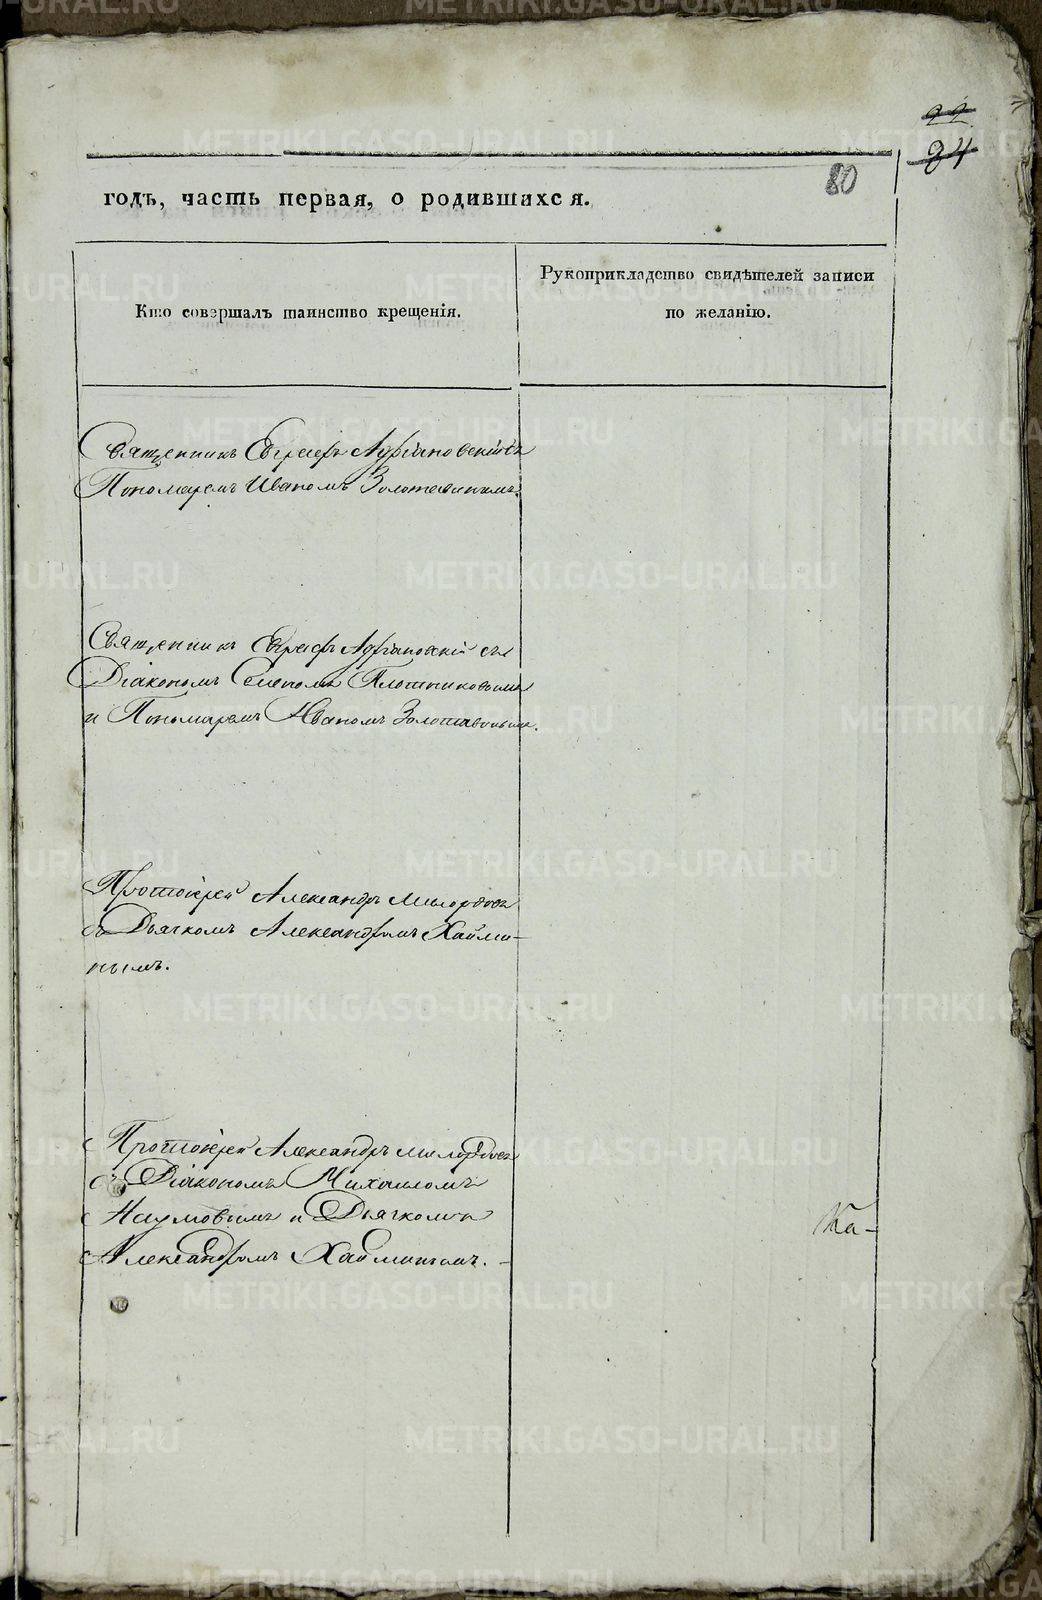 22
84
80
годъ, часть первая, о родившихся.
Кто совершалъ таинство крещенія.
Рукоприкладство свидѣтелей записи
по желанію.
Священникъ Евграфъ Адріановскій съ
Пономаремъ Иваномъ Золотавинымъ.
Священникъ Евграфъ Адріановскій съ
Діакономъ Семеномъ Плотниковымъ
и Пономаремъ Иваномъ Золотавинымъ.
Протоіерей Александръ Милордовъ
съ Дьячкомъ Александромъ Хайми-
нымъ.
Протоіерей Александръ Милордовъ
съ Діакономъ Михаиломъ
Наумовымъ и Дьячкомъ
Александромъ Хайминымъ. -
Ка-
METRIKI.GASO-URAL.RU